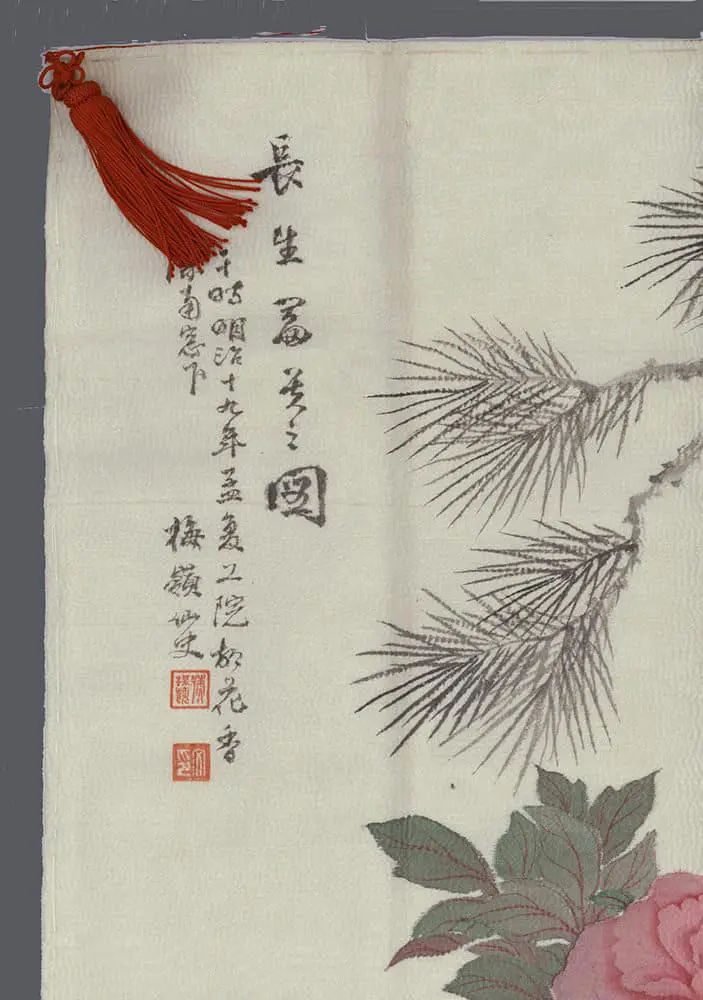 長生富貴之圖
于時明治十九年孟夏上浣於花香
南窓下
梅嶺仙史